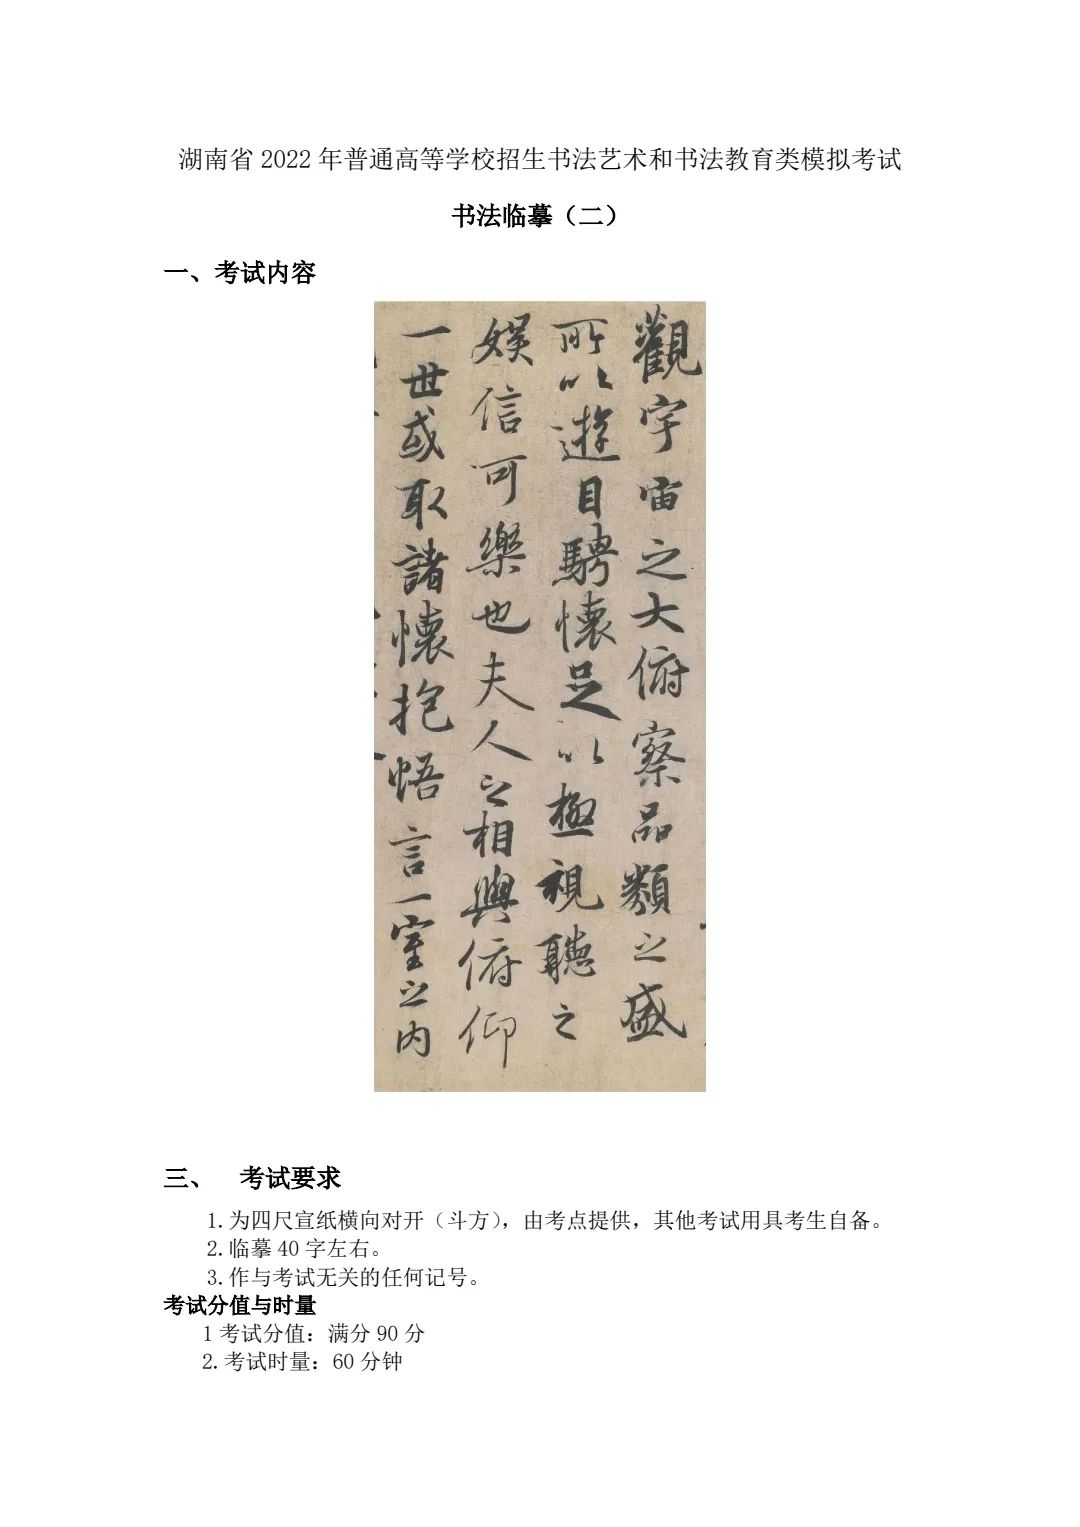 湖南省 2022 年普通高等学校招生书法艺术和书法教育类模拟考试
书法临摹（二）
一、考试内容
觀宇宙之大俯察品類之盛
所以遊目騁懷足以極視聽之
娛信可樂也夫人之相與俯仰
一世或取諸懷抱悟言一室之内
三、 考试要求
1.为四尺宣纸横向对开（斗方），由考点提供，其他考试用具考生自备。
2.临摹 40 字左右。
3.作与考试无关的任何记号。
考试分值与时量
1 考试分值：满分 90 分
2.考试时量：60 分钟